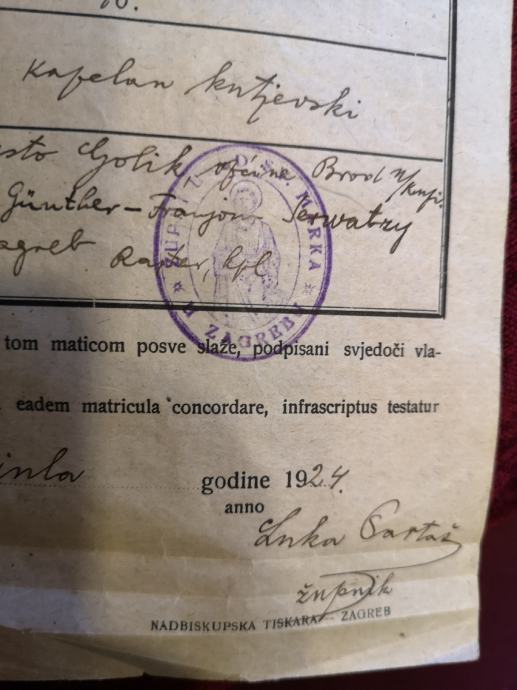 10.
Kapelan kutjevski
Golik općine Brod n/Kupi.
Günther-Franjom Serwatzy
Zagreb
ŽUPNI URED SV. MARKA
U ZAGREBU
tom maticom posve slaže, podpisani svjedoči vla-
eadem matricula concordare, infrascriptus testatur
godine 1924.
anno
Luka
župnik
NADBISKUPSKA TISKARA - ZAGREB